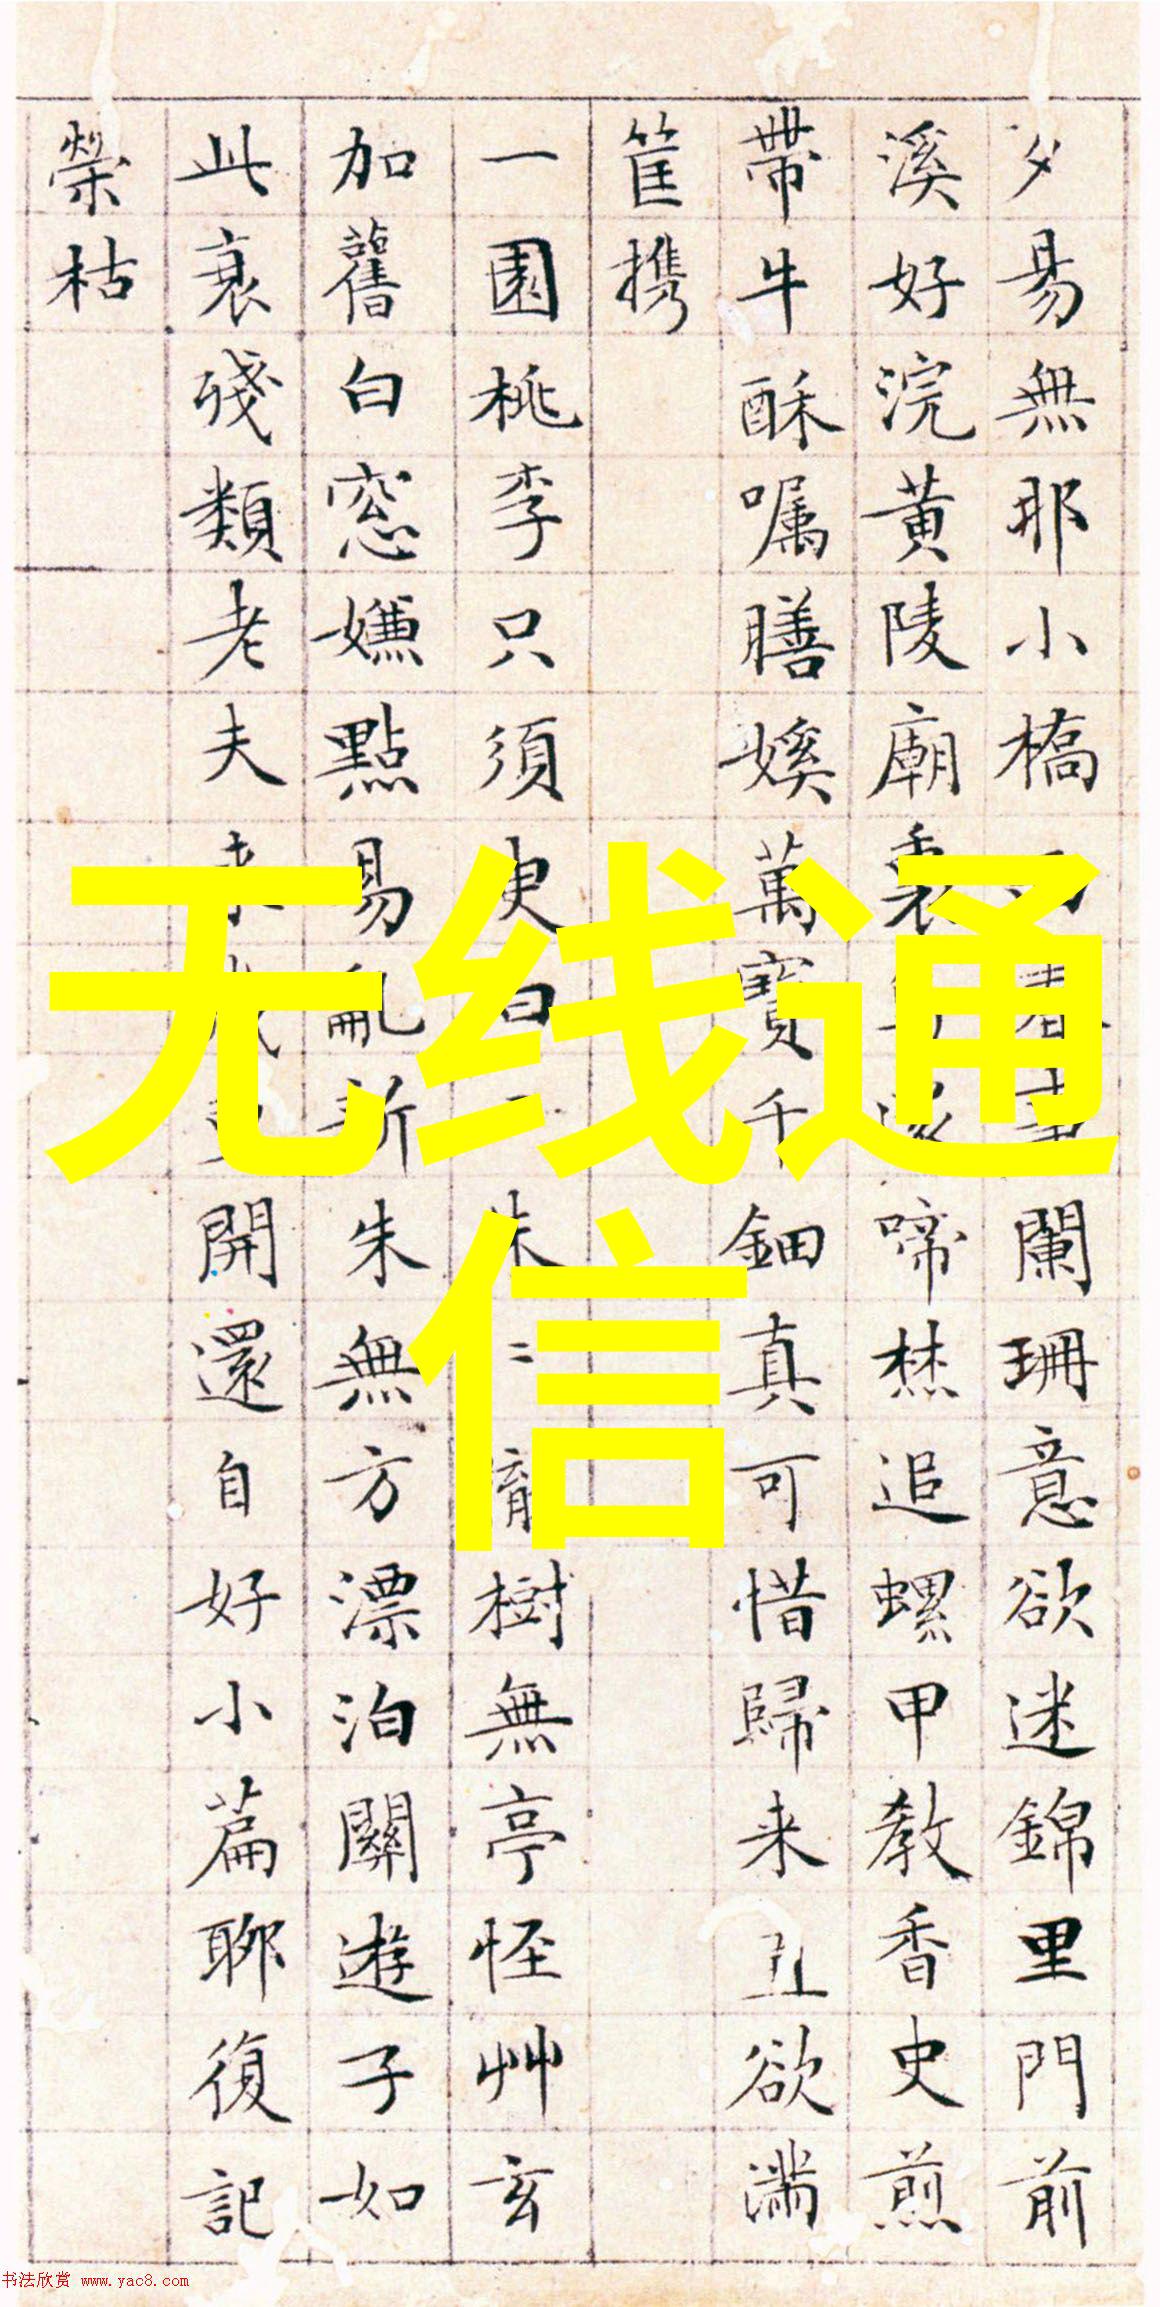 夕易無耶小橋 春事闌珊意欲迷錦里門前
溪好浣黃陵廟裏 啼楚追螺甲教香史煎
帶牛酥嘱膳媛萬寶千鈿真可惜歸来丑欲満
筐携
一園桃李只須 白 朱 樹無亭怪艸玄
加舊白窓嫌點易亂新朱無方漂泊關遊子如
此衰殘類老夫 開還自好小篇聊復記
榮枯
无线通
信
书法欣赏 www.yac8.com